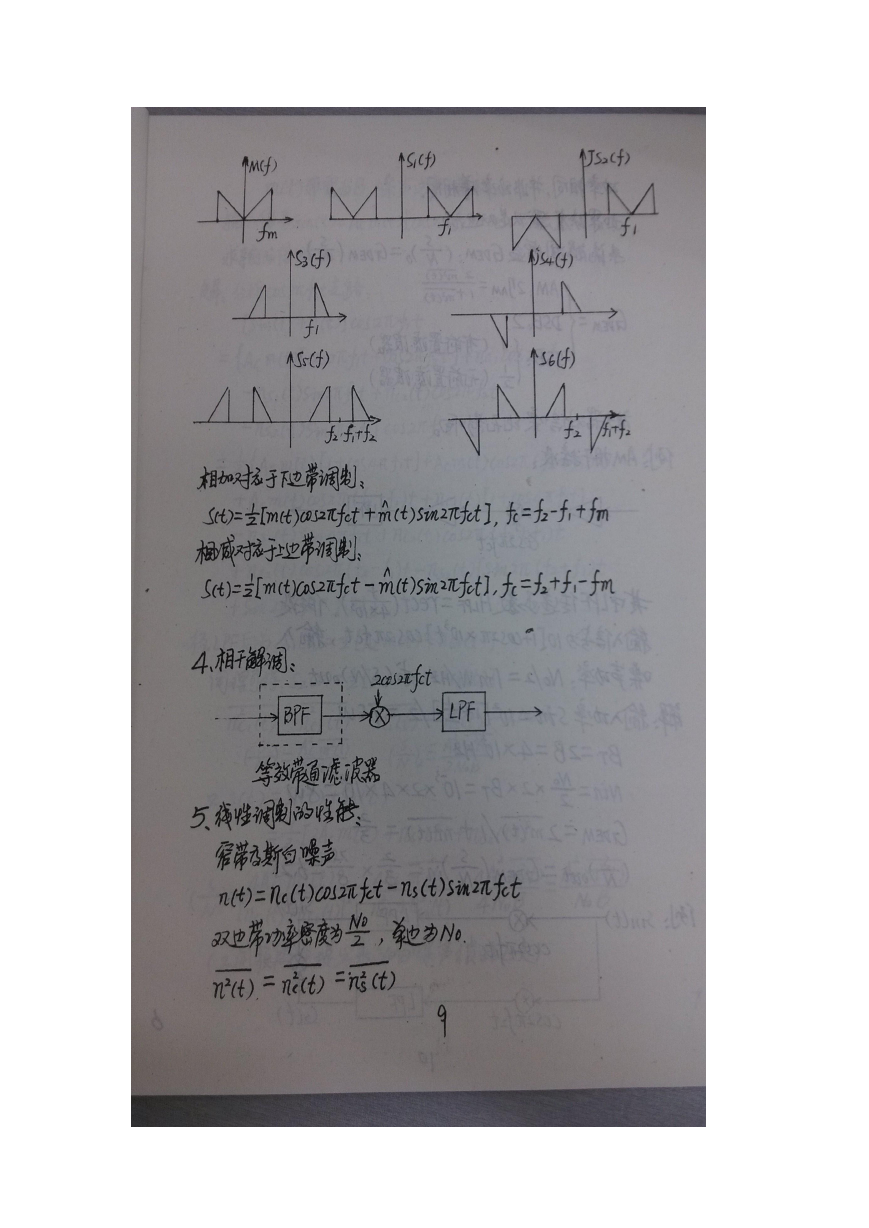 M(f) S₁(f) jS₂(f)
fm f₁ f₁
S₃(f) jS₄(f)
f₁
S₅(f) S₆(f)
f₂ f₁+f₂ f₂ f₁+f₂
相加对应于下边带调制:
S(t)=½[m(t)cos2πfct+m̂(t)sin2πfct], fc=f₂-f₁+fm
相减对应于上边带调制:
S(t)=½[m(t)cos2πfct-m̂(t)sin2πfct], fc=f₂+f₁-fm
4、相干解调:
2cos2πfct
BPF × LPF
等效带通滤波器
5、线性调制的性能:
窄带高斯白噪声
n(t)=nc(t)cos2πfct-ns(t)sin2πfct
双边带功率密度为N₀/2,单边为N₀.
n²(t)‾=nc²(t)‾=ns²(t)‾
9